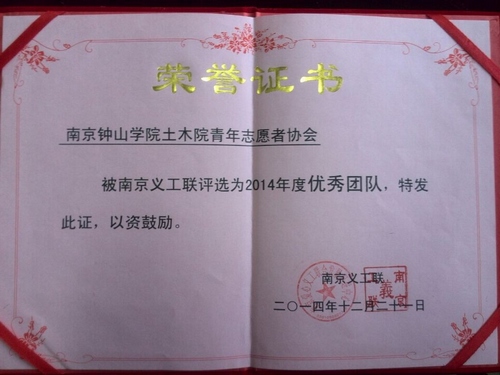 荣誉证书
南京钟山学院土木院青年志愿者协会
被南京义工联评选为2014年度优秀团队，特发
此证，以资鼓励。
南京义工联
二〇一四年十二月二十一日